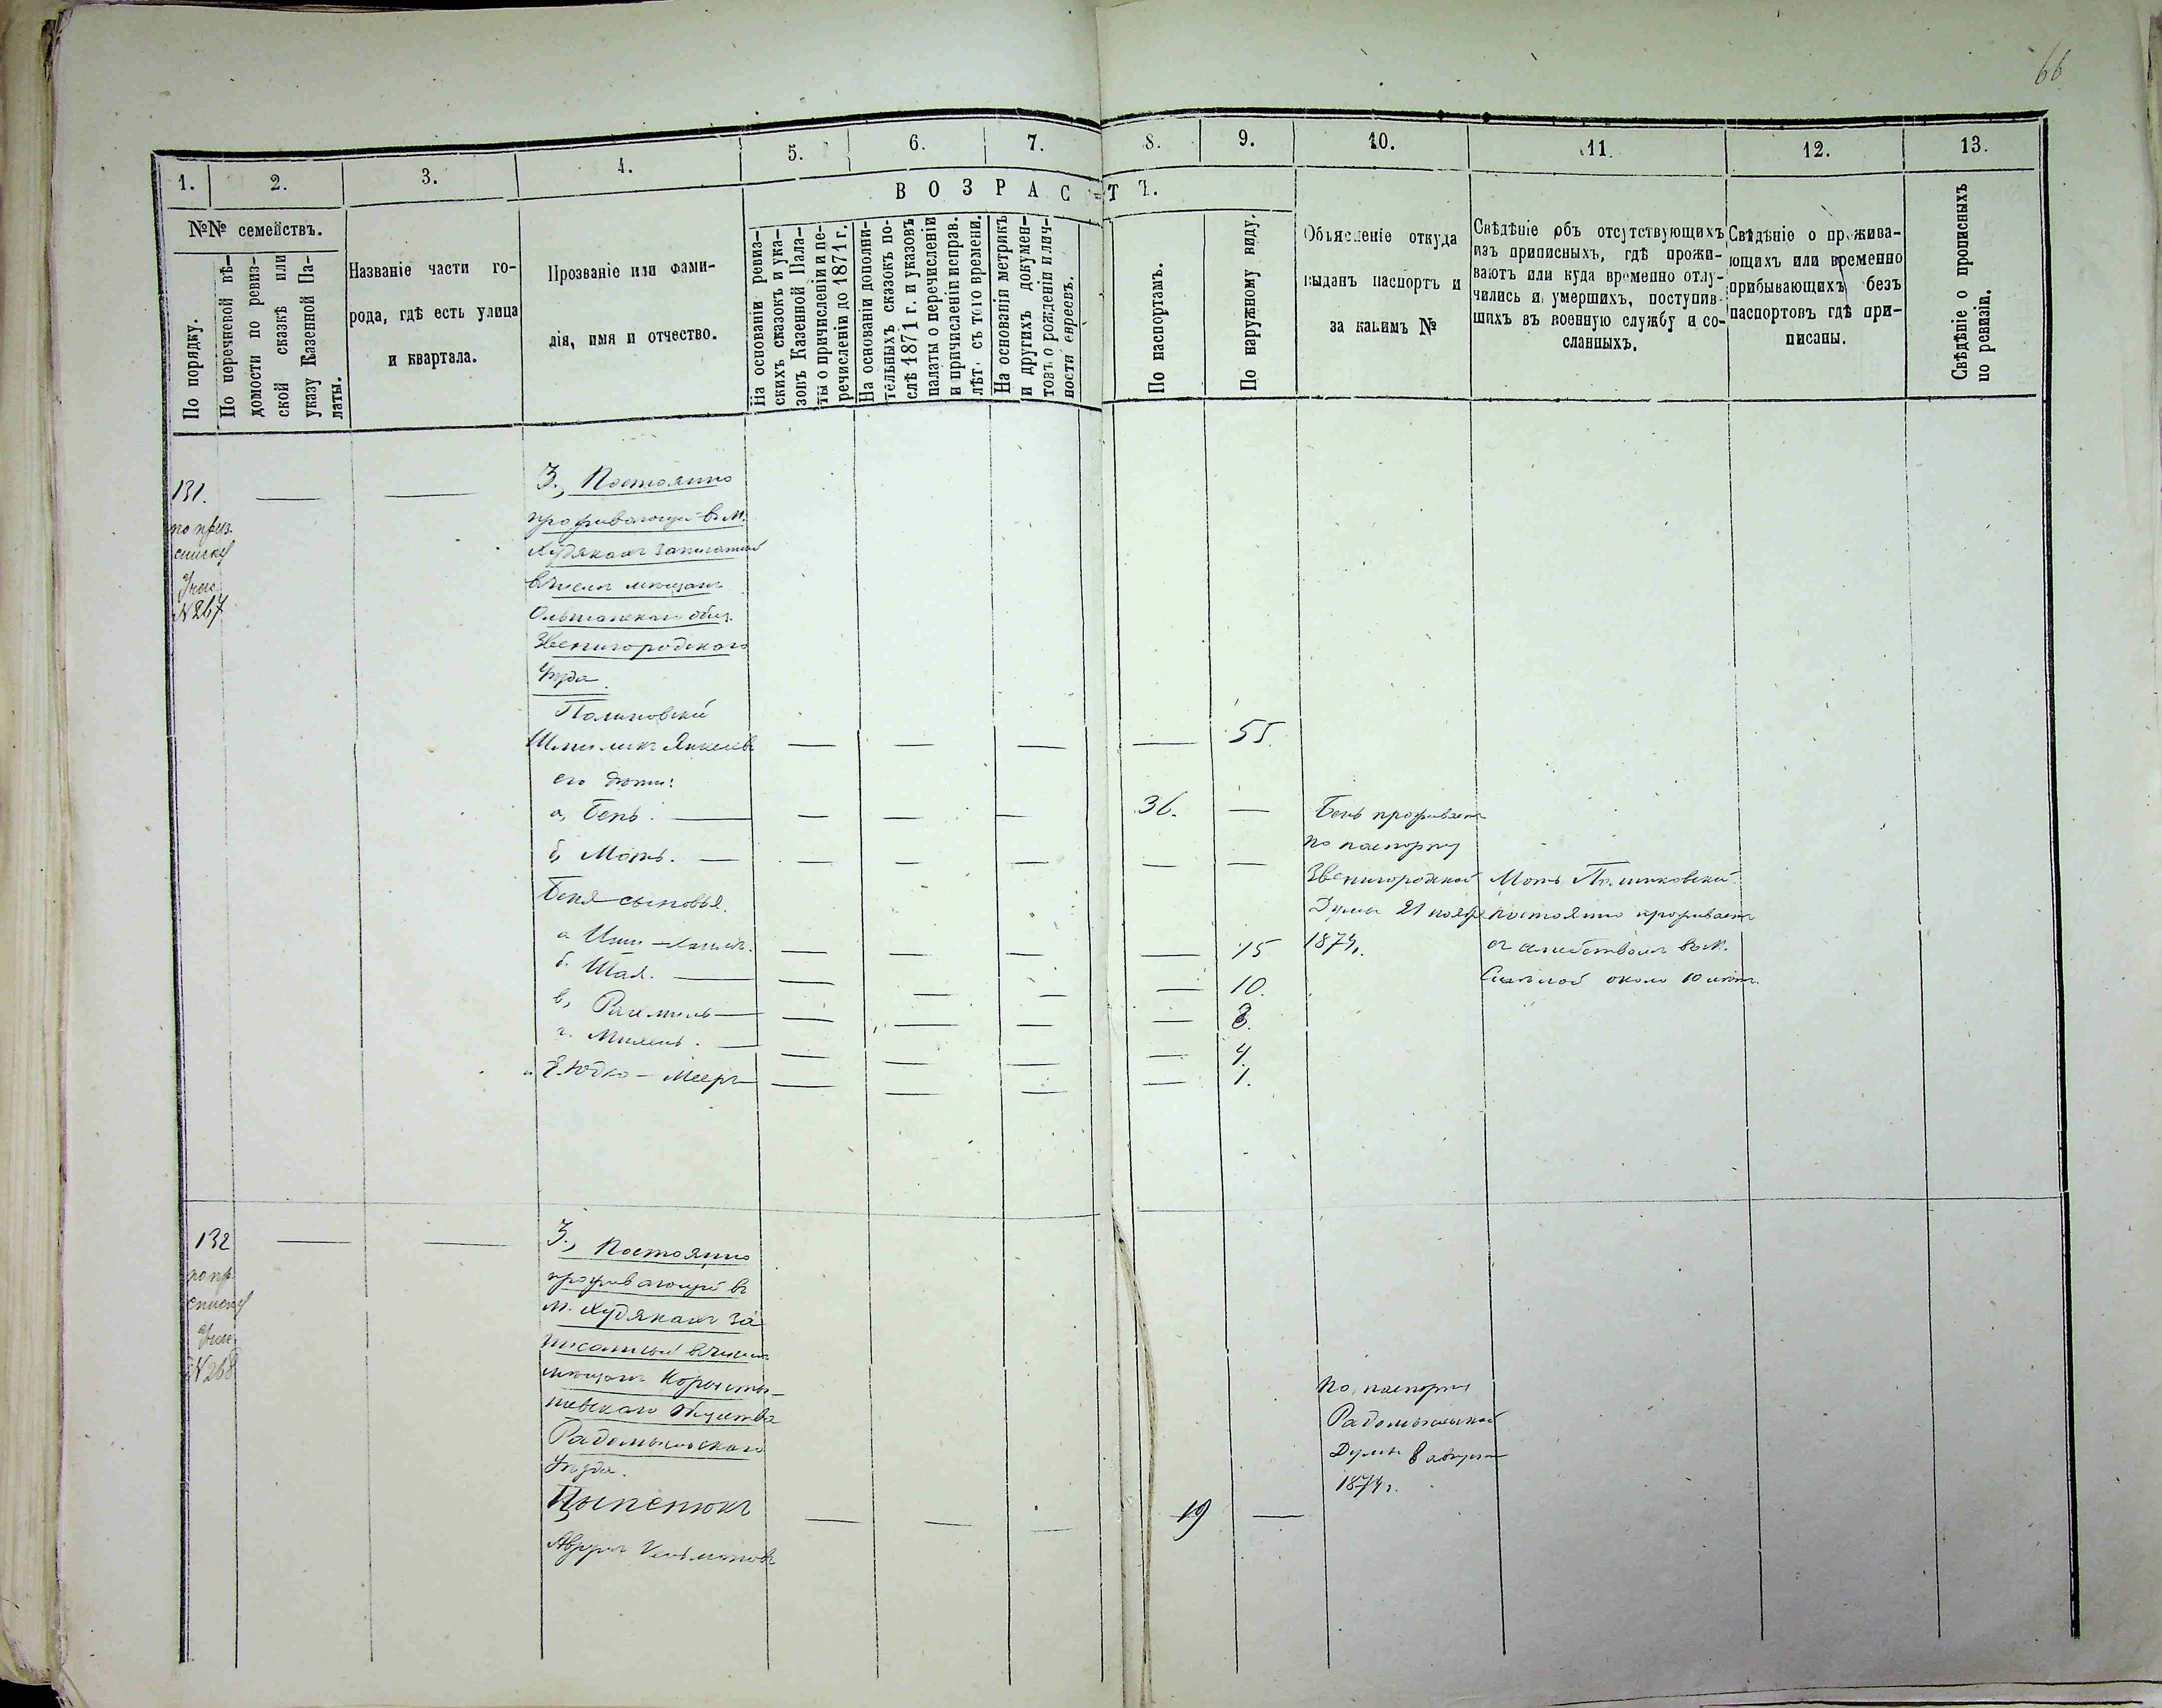 66
1. 2. 3. 4. 5. 6. 7. 8. 9. 10. 11. 12. 13.
№№ семействъ.
По порядку.
По перечневой вѣ-
домости по ревиз-
ской сказкѣ или
указу Казенной Па-
латы.
Названіе части го-
рода, гдѣ есть улица
и квартала.
Прозваніе или фами-
лія, имя и отчество.
ВОЗРАСТЪ.
На основаніи ревиз-
скихъ сказокъ и ука-
зовъ Казенной Пала-
ты о причисленіи и пе-
речисленіи до 1871 г.
На основаніи дополни-
тельныхъ сказокъ по-
слѣ 1871 г. и указовъ
палаты о перечисленіи
и причисленіи исправ.
лѣт. съ того времени.
На основаніи метрикъ
и другихъ докумен-
товъ о рожденіи илич-
ности евреевъ.
По паспортамъ.
По наружному виду.
Объясненіе откуда
выданъ паспортъ и
за какимъ №
Свѣдѣніе объ отсутствующихъ
изъ приписныхъ, гдѣ прожи-
ваютъ или куда временно отлу-
чились и умершихъ, поступив-
шихъ въ военную службу и со-
сланныхъ.
Свѣдѣніе о прожива-
ющихъ или временно
прибывающихъ безъ
паспортовъ гдѣ при-
писаны.
Свѣдѣніе о прописныхъ
по ревизіи.
131.
по приз.
списку
№ 267
3., Постоянно
проживающій въ м.
Худякахъ записанный
въ числѣ мѣщанъ
Ольшанскаго общ.
Звенигородскаго
уѣзда.
Шмиликъ Янкелевъ — — — — 55.
его дѣти:
а, Бень. — — — — 36. —
б, Моть. — — — — — —
Беня сыновья.
а — — — — 15
б. Шая. — — — — — 10.
в, — — — — — 8.
г. — — — — — 4.
д. Юдко – Мееръ — — — — 1.
Бень проживаетъ
по паспорту
Звенигородской
Думы 21 нояб.
1874 г.
Моть
постоянно проживаетъ
съ семействомъ въ м.
около 10 лѣтъ.
132
по пр.
списку
№ 268
3., Постоянно
проживающій въ
м. Худякахъ за
писанный въ числѣ
мѣщанъ Коросты-
шевскаго общества
Радомысльскаго
уѣзда.
Цыпенюкъ — — — 19 —
Аврумъ
По паспорту
Радомысльской
Думы 8 августа
1874 г.